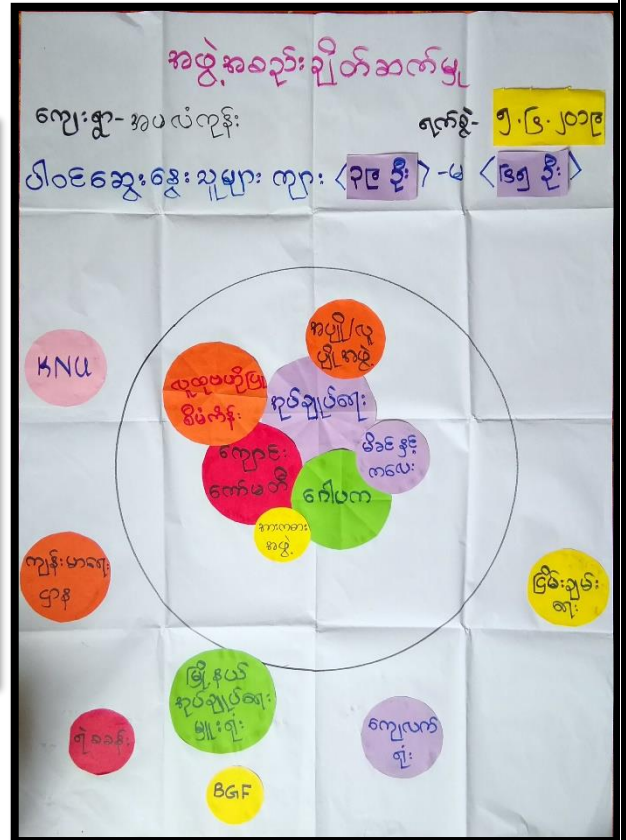 အဖွဲ့အစည်းချိတ်ဆက်မှု
ကျေးရွာ - အပလံကုန်း
ရက်စွဲ - ၅.၄.၂၀၁၉
ပါဝင်ဆွေးနွေးသူများ ကျား <၃၉ ဦး> - မ <၆၅ ဦး>
အပျို/လူပျို အဖွဲ့
KNU
လူထုဗဟိုပြု
စီမံကိန်း
အုပ်ချုပ်ရေး
မိခင်နှင့်
ကလေး
ကျောင်း
ကော်မတီ
ဂေါပက
အားကစား
အဖွဲ့
ကျန်းမာရေး
ဌာန
ငြိမ်းချမ်း
ရေး
မြို့နယ်
အုပ်ချုပ်ရေး
မှူးရုံး
ရဲစခန်း
ကျေးလက်
ရုံး
BGF